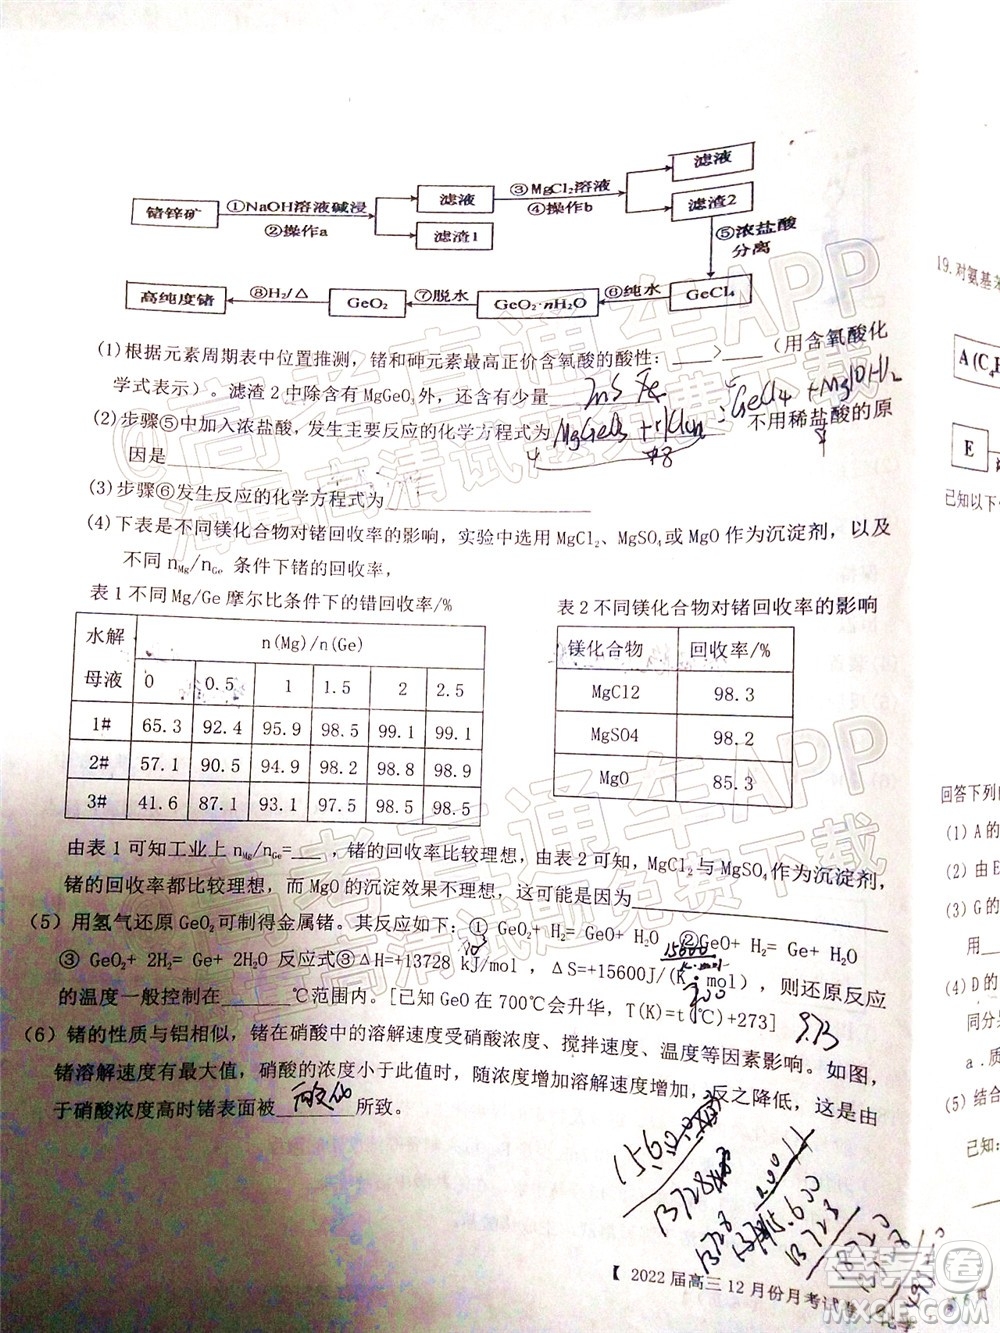 锗锌矿 ①NaOH溶液碱浸 ②操作a 滤液 滤渣1 ③MgCl2溶液 ④操作b 滤液 滤渣2
⑤浓盐酸 分离
高纯度锗 ⑧H₂/△ GeO₂ ⑦脱水 GeO₂·nH₂O ⑥纯水 GeCl₄
(1)根据元素周期表中位置推测，锗和砷元素最高正价含氧酸的酸性：____>____(用含氧酸化
学式表示）。滤渣 2 中除含有 MgGeO₃外，还含有少量 ZnS Fe
(2)步骤⑤中加入浓盐酸，发生主要反应的化学方程式为 不用稀盐酸的原
GeCl4 + Mg(OH)2
因是________
(3)步骤⑥发生反应的化学方程式为________
(4)下表是不同镁化合物对锗回收率的影响，实验中选用 MgCl₂、MgSO₄或 MgO 作为沉淀剂，以及
不同 nMg/nGe 条件下锗的回收率，
表 1 不同 Mg/Ge 摩尔比条件下的锗回收率/%
水解母液 n(Mg)/n(Ge)
0 0.5 1 1.5 2 2.5
1# 65.3 92.4 95.9 98.5 99.1 99.1
2# 57.1 90.5 94.9 98.2 98.8 98.9
3# 41.6 87.1 93.1 97.5 98.5 98.5
表 2 不同镁化合物对锗回收率的影响
镁化合物 回收率/%
MgCl2 98.3
MgSO4 98.2
MgO 85.3
由表 1 可知工业上 nMg/nGe=____，锗的回收率比较理想，由表 2 可知，MgCl₂与 MgSO₄作为沉淀剂，
锗的回收率都比较理想，而 MgO 的沉淀效果不理想，这可能是因为________
(5) 用氢气还原 GeO₂可制得金属锗。其反应如下：① GeO₂+ H₂= GeO+ H₂O ②GeO+ H₂= Ge+ H₂O
③ GeO₂+ 2H₂= Ge+ 2H₂O 反应式③ΔH=+13728 kJ/mol，ΔS=+15600J/(K·mol)，则还原反应
的温度一般控制在______℃范围内。[已知 GeO 在 700℃会升华，T(K)=t(℃)+273]
700
973
(6) 锗的性质与铝相似，锗在硝酸中的溶解速度受硝酸浓度、搅拌速度、温度等因素影响。如图，
锗溶解速度有最大值，硝酸的浓度小于此值时，随浓度增加溶解速度增加，反之降低，这是由
于硝酸浓度高时锗表面被 所致。
【 2022 届高三 12 月份月考试卷
19.对氨基苯
E
已知以下
回答下列
(1) A 的
(2) 由 E
(3) G 的
用
(4) D 的
同分
a.质
(5) 结合
已知：
@高考直通车APP
海量高清试题免费下载
@高考直通车APP
海量高清试题免费下载
答案圈
MXQE.COM